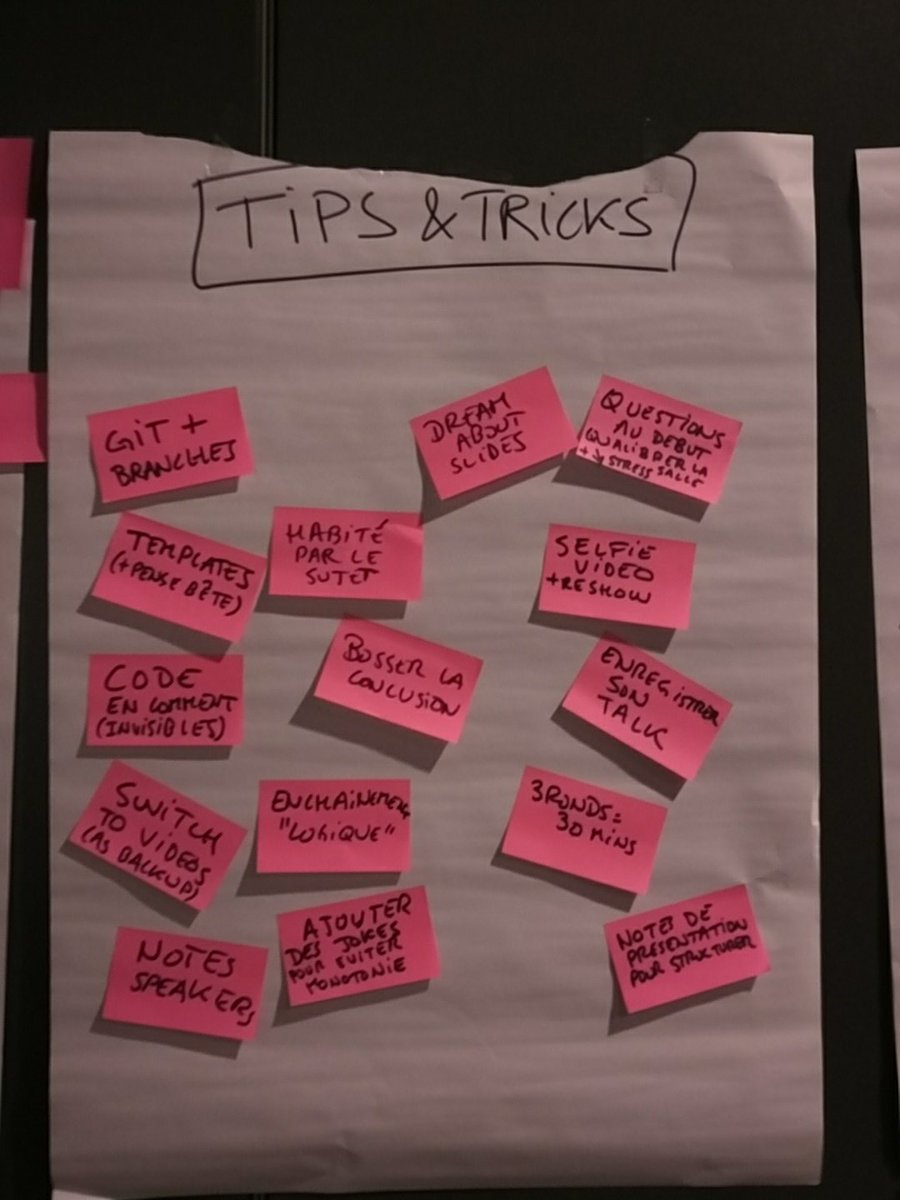 TIPS & TRICKS
GIT +
BRANCHES
DREAM
ABOUT
SLIDES
QUESTIONS
AU DEBUT
QUALIBRER LA
+ ↘ STRESS SALLE
TEMPLATES
(+ PENSE BÊTE)
HABITÉ
PAR LE
SUJET
SELFIE
VIDEO
+ RESHOW
CODE
EN COMMENT
(INVISIBLES)
BOSSER LA
CONCLUSION
ENREGISTRER
SON
TALK
SWITCH
TO VIDEOS
(AS BACKUP)
ENCHAINEMENT
"LOGIQUE"
3 RONDS =
30 MINS
NOTES
SPEAKERS
AJOUTER
DES JOKES
POUR EVITER
MONOTONIE
NOTES DE
PRESENTATION
POUR STRUCTURER